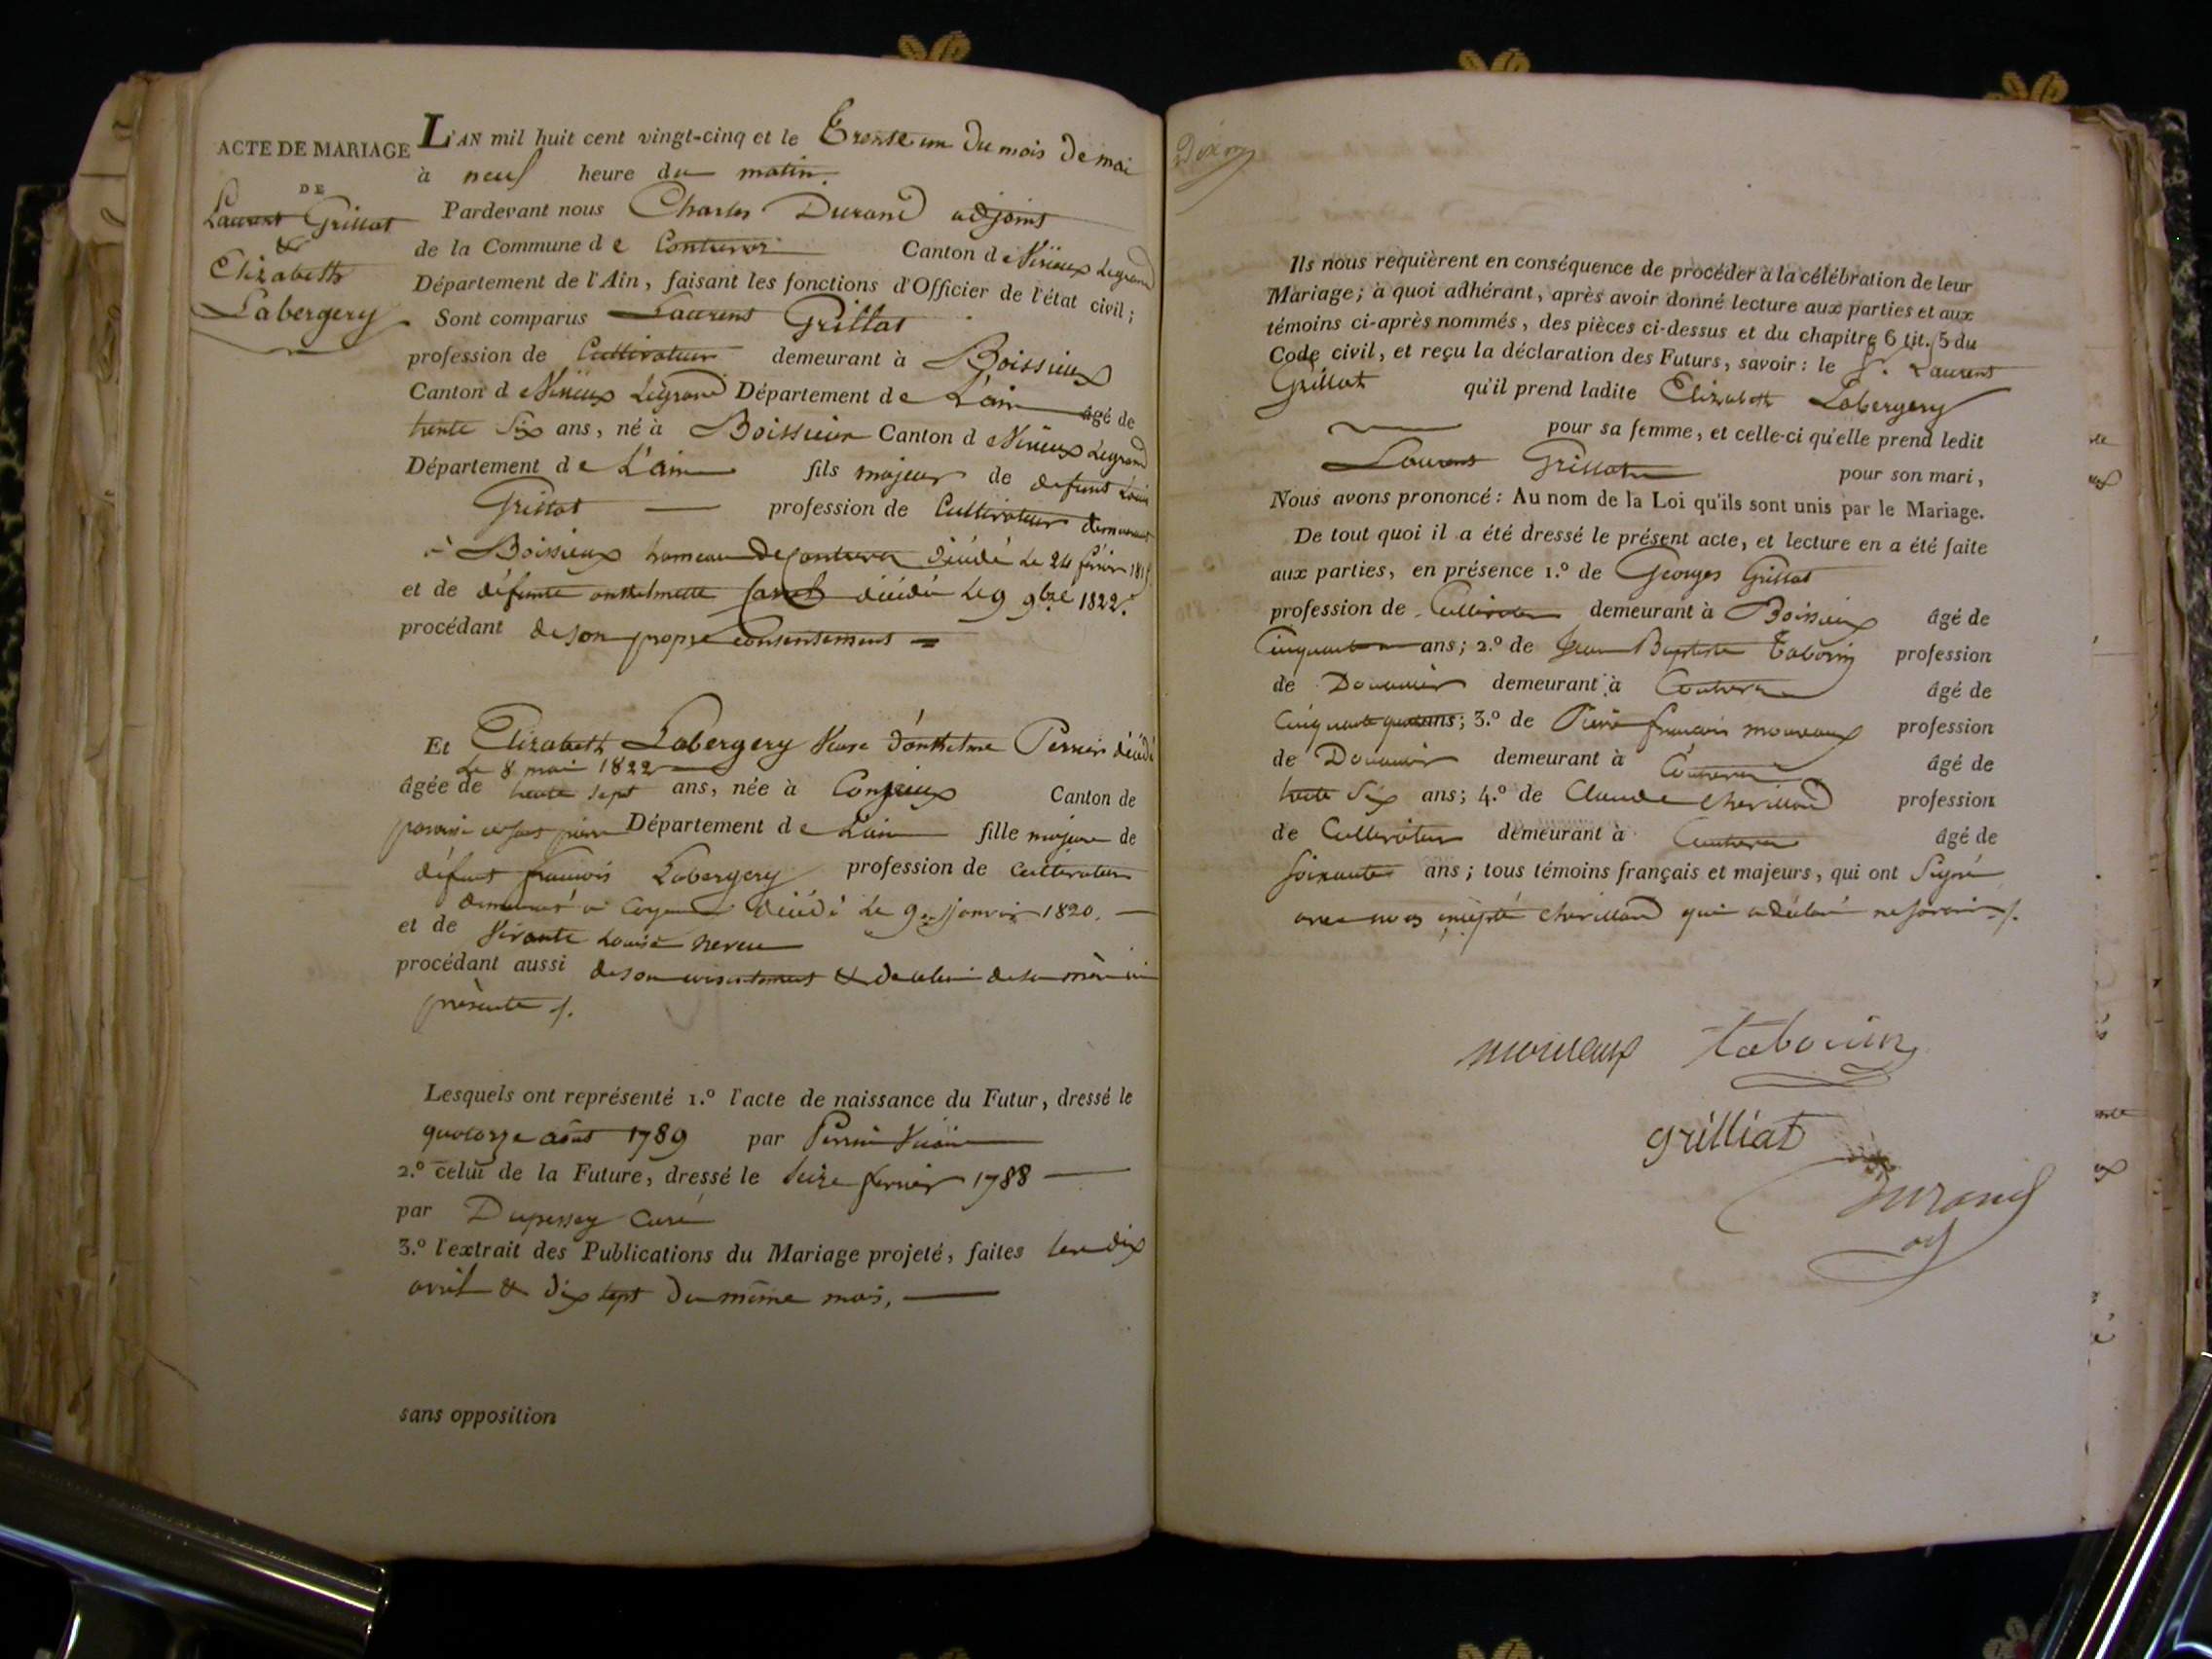 ACTE DE MARIAGE
DE
Laurent Grillat
&
Elizabeth
Labergery
L'AN mil huit cent vingt-cinq et le Trente un du mois de mai
à neuf heure du matin.
Pardevant nous Charles Durand adjoint
de la Commune de Contrevoz Canton de Virieux Legrand
Département de l'Ain, faisant les fonctions d'Officier de l'état civil;
Sont comparus Laurent Grillat
profession de Cultivateur demeurant à Boissieux
Canton de Virieux Legrand Département de L'ain âgé de
trente Six ans, né à Boissieux Canton de Virieux Legrand
Département de L'ain fils majeur de defunt Louis
Grillat profession de Cultivateur demeurant
à Boissieux hameau de Contrevoz décédé Le 24 février
et de défunte anthelmette décédée Le 9 9bre 1822.
procédant de son propre Consentement =
Et Elizabeth Labergery Veuve d'anthelme Perrier décédé
Le 8 mai 1822
âgée de trente sept ans, née à Conzieux Canton de
Département de L'ain fille majeure de
défunt françois Labergery profession de Cultivateur
demeurant à décédé Le 9 janvier 1820.
et de Vivante Louise
procédant aussi de son consentement & de celui de sa mère ici
présente /.
Lesquels ont représenté 1.º l'acte de naissance du Futur, dressé le
quatorze août 1789 par Perrin Vicaire
2.º celui de la Future, dressé le Seize fevrier 1788
par Curé
3.º l'extrait des Publications du Mariage projeté, faites les dix
avril & dix sept du même mois,
sans opposition
Ils nous requièrent en conséquence de procéder à la célébration de leur
Mariage; à quoi adhérant, après avoir donné lecture aux parties et aux
témoins ci-après nommés, des pièces ci-dessus et du chapitre 6 tit. 5 du
Code civil, et reçu la déclaration des Futurs, savoir: le S. Laurent
Grillat qu'il prend ladite Elizabeth Labergery
pour sa femme, et celle-ci qu'elle prend ledit
Laurent Grillat pour son mari,
Nous avons prononcé: Au nom de la Loi qu'ils sont unis par le Mariage.
De tout quoi il a été dressé le présent acte, et lecture en a été faite
aux parties, en présence 1.º de Georges Grillat
profession de Cultivateur demeurant à Boissieux âgé de
Cinquante ans; 2.º de Jean Baptiste Tabouin profession
de Douanier demeurant à Contrevoz âgé de
Cinquante quatre ans; 3.º de Pierre françois mouveaux profession
de Douanier demeurant à Contrevoz âgé de
trente Six ans; 4.º de Claude Chevilland profession
de Cultivateur demeurant à Contrevoz âgé de
Soixante ans; tous témoins français et majeurs, qui ont Signé
avec nous excepté Chevilland qui a déclaré ne savoir /.
mouveaux tabouin
grilliat
Durand
adj